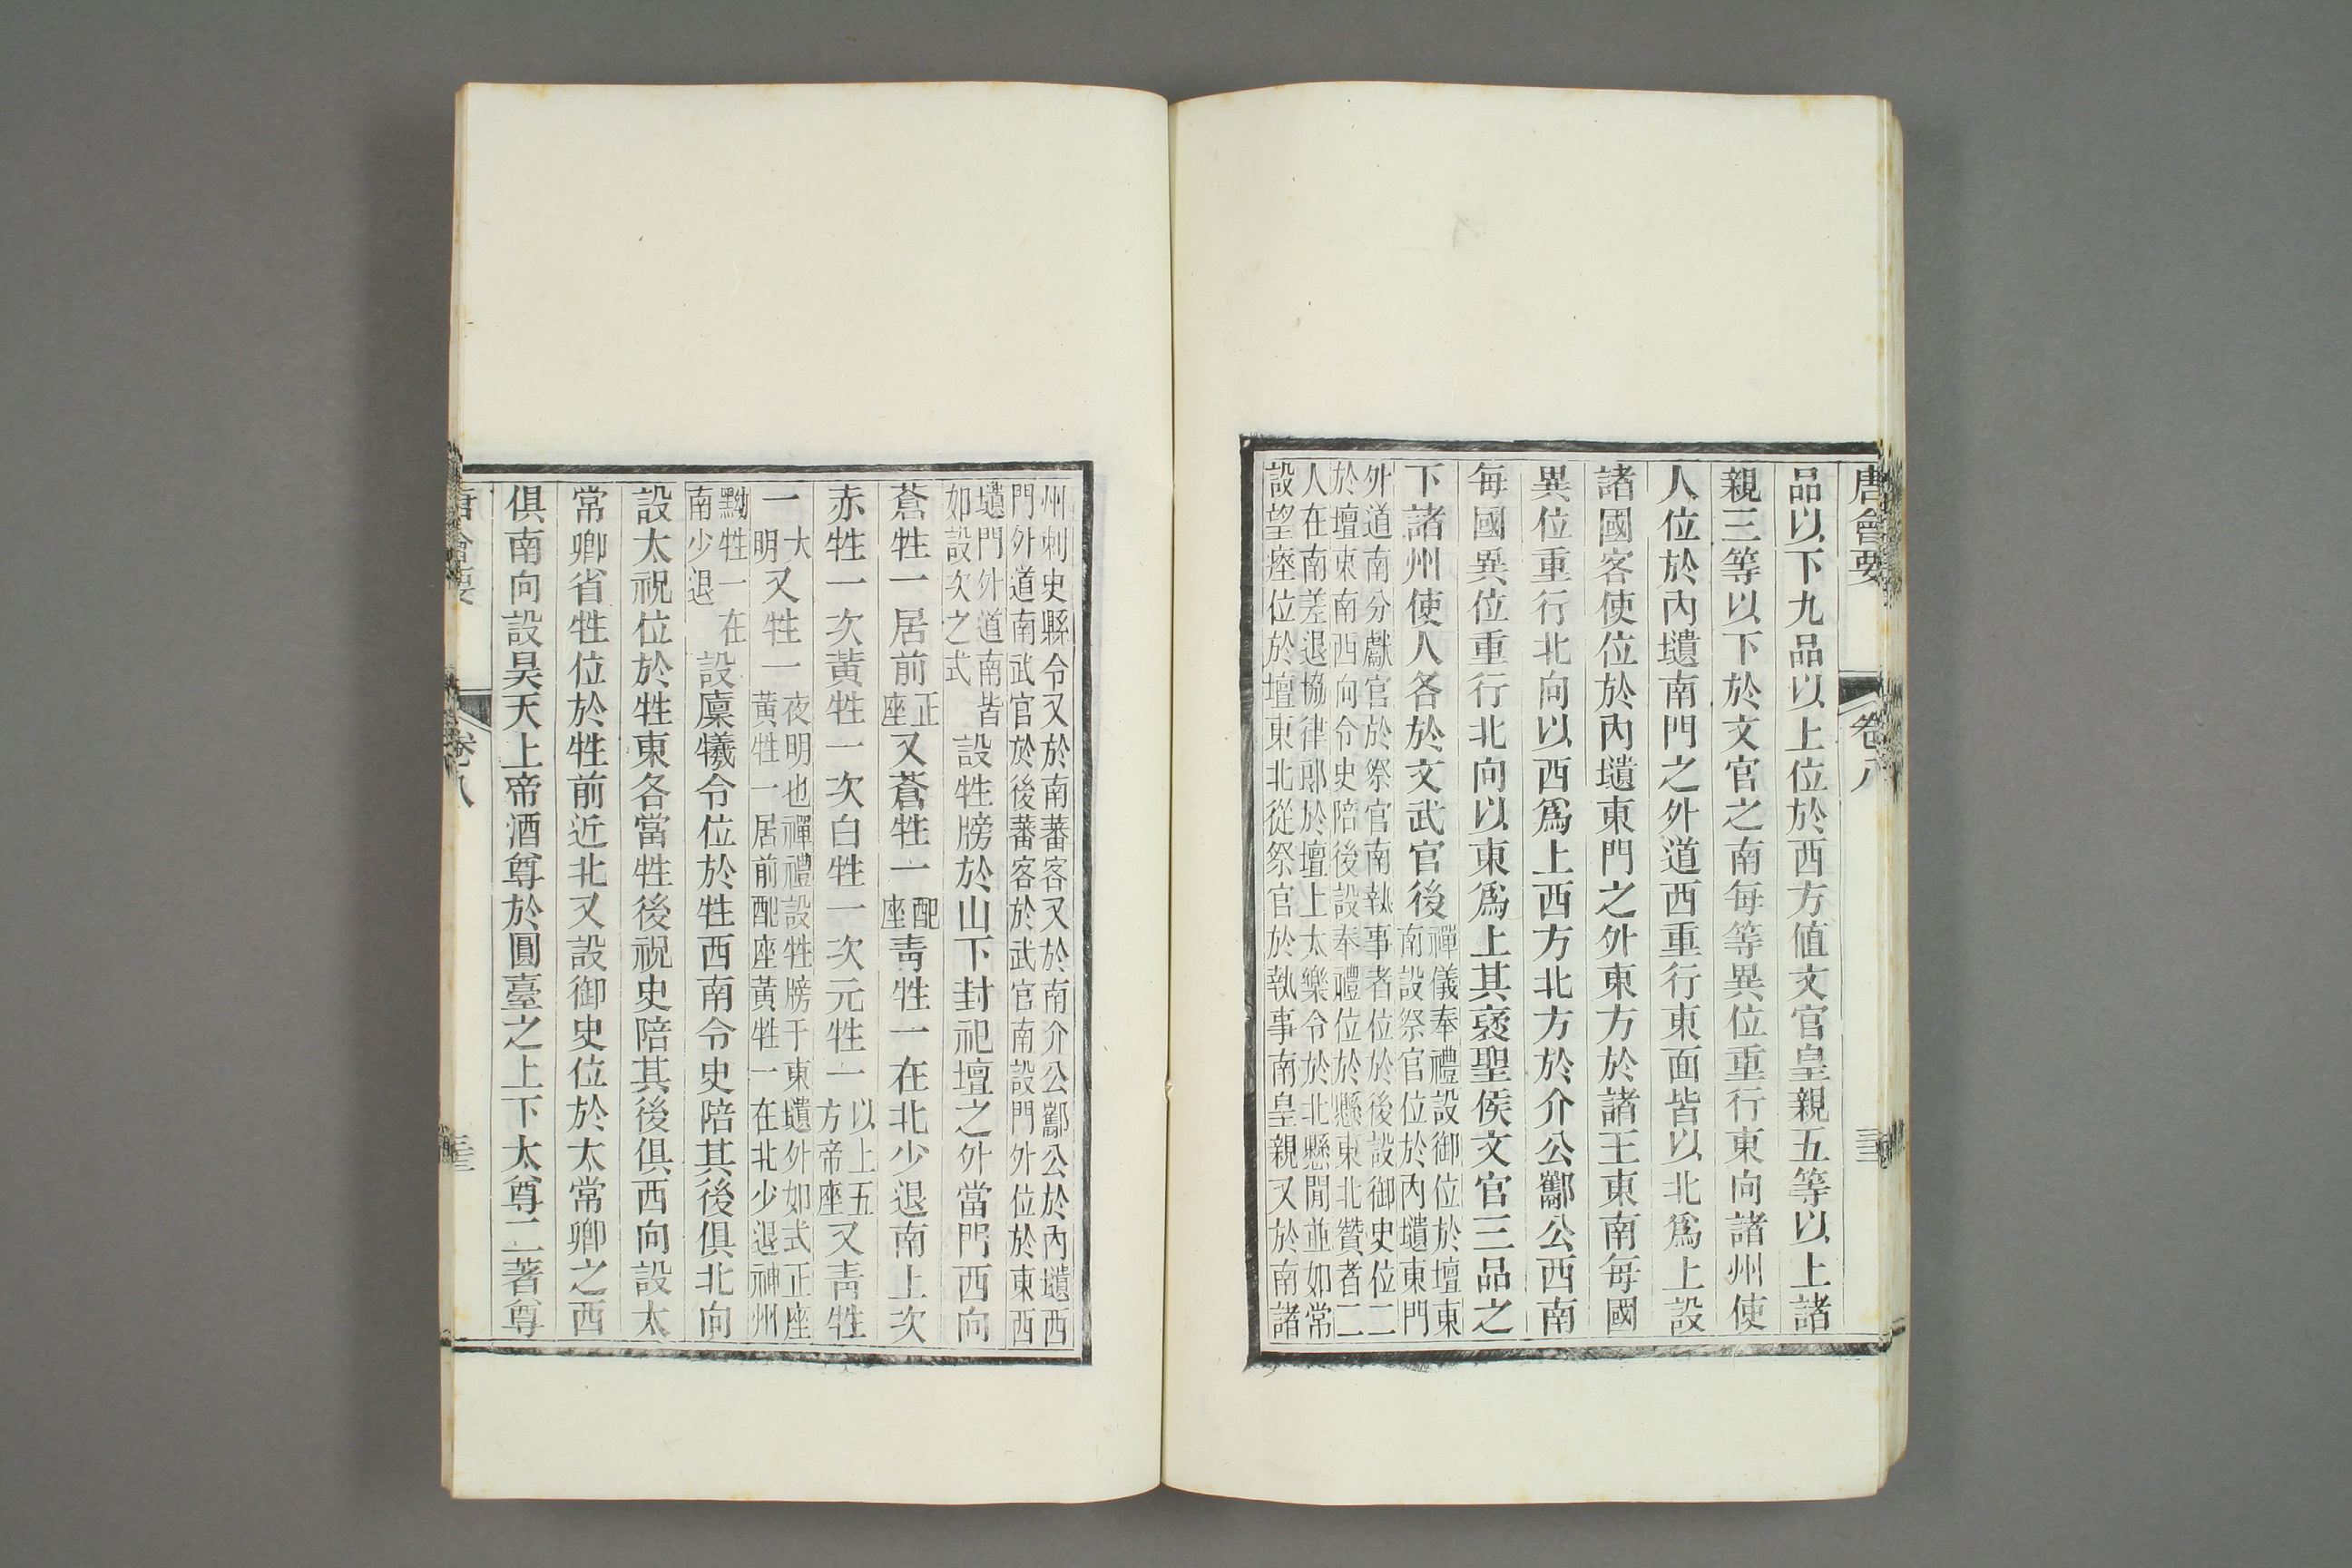 唐會要 卷八 三
品以下九品以上位於西方値文官皇親五等以上諸
親三等以下於文官之南每等異位重行東向諸州使
人位於內壝南門之外道西重行東面皆以北爲上設
諸國客使位於內壝東門之外東方於諸王東南每國
異位重行北向以西爲上西方北方於介公酅公西南
每國異位重行北向以東爲上其褒聖侯文官三品之
下諸州使人各於文武官後
禪儀奉禮設御位於壇東
南設祭官位於內壝東門
外道南分獻官於祭官南執事者位於後設御史位二
於壇東南西向令史陪後設奉禮位於懸東北贊者二
人在南差退協律郎於壇上太樂令於北懸閒並如常
設望瘞位於壇東北從祭官於執事南皇親又於南諸
州刺史縣令又於南蕃客又於南介公酅公於內壝西
門外道南武官於後蕃客於武官南設門外位於東西
壝門外道南皆
如設次之式
設牲牓於山下封祀壇之外當門西向
蒼牲一居前
正
座
又蒼牲一
配
座
靑牲一在北少退南上次
赤牲一次黃牲一次白牲一次元牲一
以上五
方帝座
又靑牲
一
大
明
又牲一
夜明也禪禮設牲牓于東壝外如式正座
黃牲一居前配座黃牲一在北少退神州
黝牲一在
南少退
設廩犧令位於牲西南令史陪其後俱北向
設太祝位於牲東各當牲後祝史陪其後俱西向設太
常卿省牲位於牲前近北又設御史位於太常卿之西
俱南向設昊天上帝酒尊於圓臺之上下太尊二著尊
唐會要 卷八